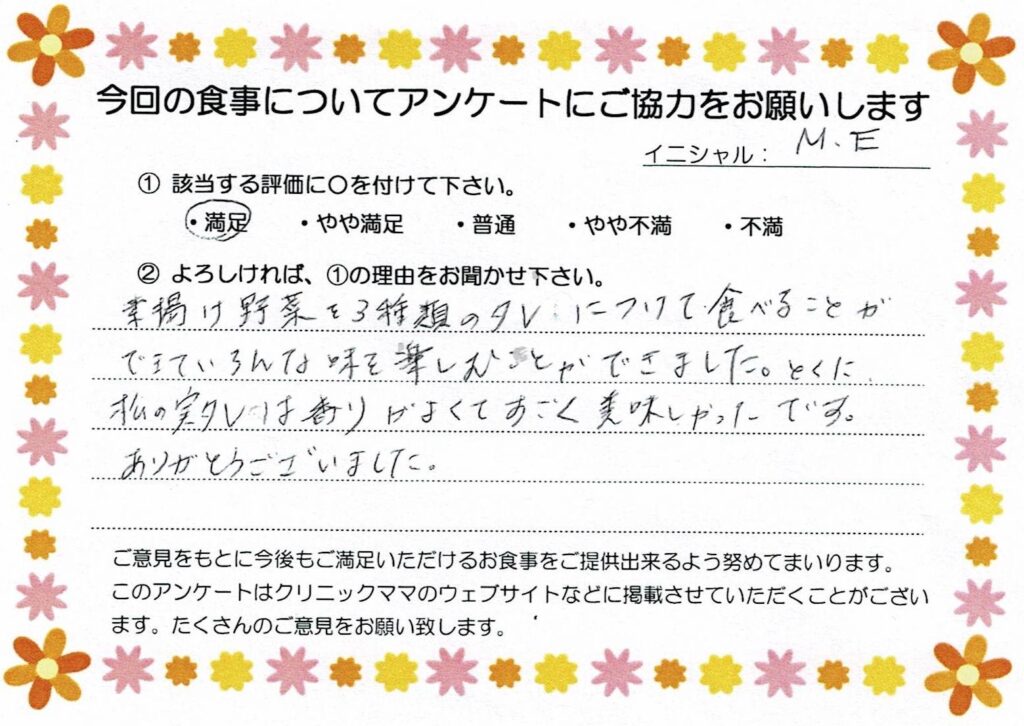 今回の食事についてアンケートにご協力をお願いします
イニシャル： M.E
① 該当する評価に〇を付けて下さい。
・満足 ・やや満足 ・普通 ・やや不満 ・不満
② よろしければ、①の理由をお聞かせ下さい。
素揚げ野菜を3種類のタレにつけて食べることが
できていろんな味を楽しむことができました。とくに
松の実タレは香りがよくてすごく美味しかったです。
ありがとうございました。
ご意見をもとに今後もご満足いただけるお食事をご提供出来るよう努めてまいります。
このアンケートはクリニックママのウェブサイトなどに掲載させていただくことがござい
ます。たくさんのご意見をお願い致します。